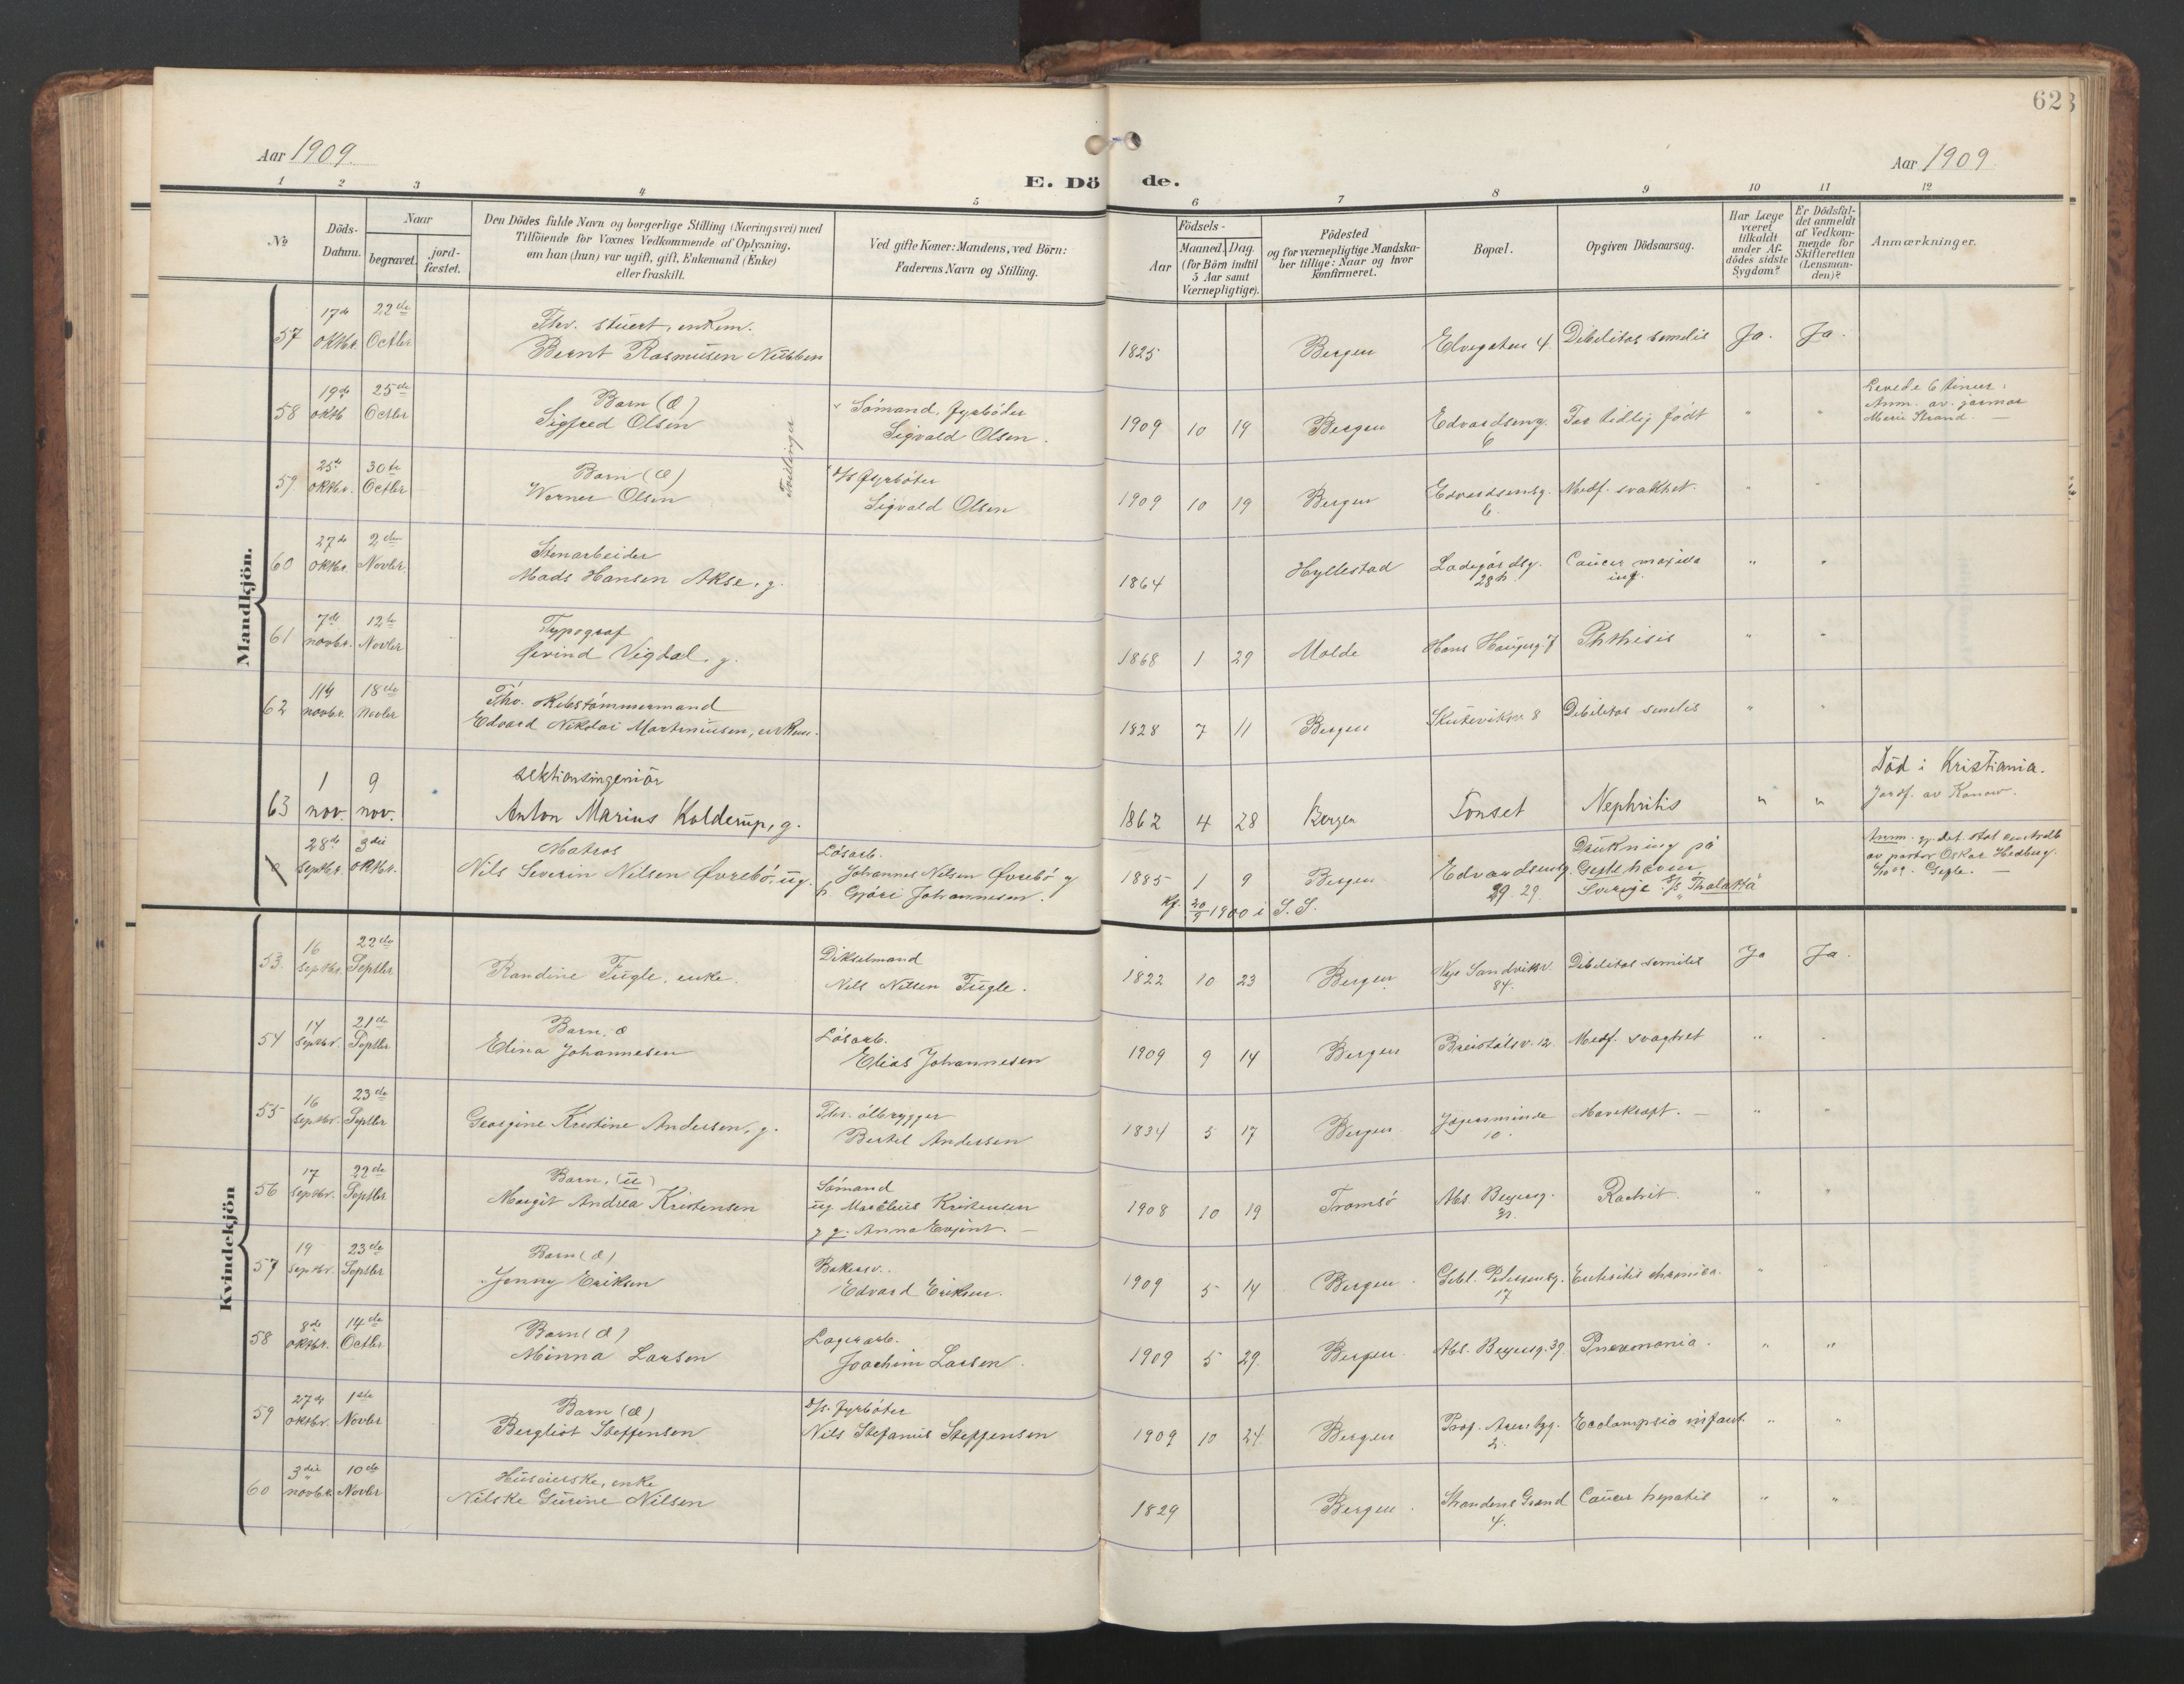 62
Aar 1909.
Aar 1909
E. Dö de.
1 2 3 4 5 6 7 8 9 10 11 12
№
Döds-Datum.
Naar
begravet.
jord-fæstet.
Den Dödes fulde Navn og borgerlige Stilling (Næringsvei) med
Tilföiende for Voxnes Vedkommende af Oplysning,
om han (hun) var ugift, gift, Enkemand (Enke)
eller fraskilt.
Ved gifte Koner: Mandens, ved Börn:
Faderens Navn og Stilling.
Födsels-
Aar
Maaned. Dag.
(for Börn indtil
5 Aar samt
Værnepligtige).
Födested
og for værnepligtige Mandska-
ber tillige: Naar og hvor
konfirmeret.
Bopæl.
Opgiven Dödsaarsag.
Har Læge
været
tilkaldt
under Af-
dödes sidste
Sygdom?
Er Dödsfal-
det anmeldt
af Vedkom-
mende for
Skifteretten
(Lensman-
den)?
Anmærkninger.
Mandkjön.
57 17de oktbr. 22de Octbr Fhv. stuert, enkem.
Bernt Rasmusen Nübben 1825 Bergen Elvegaten 4. Debilitas senilis Ja. Ja.
58 19de oktb 25de Octbr Barn (Æ)
Sigfred Olsen
Sömand, fyrböder
Sigvald Olsen. 1909 10 19 Bergen Edvardseng. 6 For tidlig födt " "
Levede 6 timer.
Anm. av. jormor
Marie Strand —
Tvillinger
59 25de oktbr. 30te Octbr Barn (Æ)
Werner Olsen
d/s fyrböter
Sigvald Olsen 1909 10 19 Bergen Edvardsensg. 6. Medf. svakhet. " "
60 27de oktbr. 2den Novbr. Stenarbeider
Mads Hansen Akse, g. 1864 Hyllestad Ladegårdsg. 28b. Cancer maxilla inf. " "
61 7de novbr. 12te Novbr Typograf
Øivind Vigdal, g. 1868 1 29 Molde Hans Haugesg. 7 Phthisis " "
62 11te novbr. 18de Novbr Fhv. skibstömmermand
Edvard Nikolai Martinusen, enkem. 1828 7 11 Bergen Skuteviksv. 8 Debilitas senilis " "
63 1 nov. 9 nov. sektionsingeniör
Anton Marius Kolderup, g. 1862 4 28 Bergen Tönset Nephritis " "
Död i Kristiania.
Jordf. av Konow.
28de septbr. 3die oktbr. Matros
Nils Severin Nilsen Øvrebö, ug.
Lösarb.
Johannes Nilsen Øvrebö og
h. Gjöri Johannesen. 1885 1 9 Bergen
Kf. 30/9 1900 i S. S.
Edvardsensg. 29. 29.
Drukning på
Gefle havn,
Sverige S/s "Thalatta"
av pastor Oskar Hedberg.
Gefle. —
Kvindekjön
53. 16 septbr. 22de Septbr. Randine Fügle, enke.
Dikselmand
Nils Nilsen Fügle. 1822 10 23 Bergen Nye Sandviksv. 84. Debilitas senilis Ja Ja.
54 14 septbr. 21de Septbr. Barn, Æ
Elina Johannesen
Lösarb.
Elias Johannesen 1909 9 14 Bergen Breistölsv. 12. Medf. svaghet " "
55 16 septbr. 23de Septbr Georgine Kristine Andersen, g.
Fhv. ölbrygger
Bertel Andersen 1834 5 17 Bergen. Jægersminde 10. Mavekræft. — " "
56 17 septbr. 22de Septbr Barn, (u)
Margit Andrea Kristensen
Sömand
ug. Marelius Kristensen
og g. Anna Evjent. — 1908 10 19 Tromsö Abs. Beyersg. Rachit. " "
57 19 septbr. 23de Septbr Barn (Æ)
Jenny Eriksen
Bakersv.
Edvard Eriksen. 1909 5 14 Bergen. Gebl. Pedersensg. 17 Enteritis chronica. " "
58 8de oktbr. 14de Octbr Barn (Æ)
Minna Larsen
Lagerarb.
Joachim Larsen. 1909 5 29. Bergen. Abs. Beyersg. 39. Pneumonia. " "
59 27de oktbr. 1ste Novbr Barn (Æ)
Bergliot Steffensen
d/s. fyrböter
Nils Stefanus Steffensen 1909 10 24. Bergen Prof. 2. Eclampsia infant. " "
60 3die novbr. 10de Novbr Huseierske, enke
Nilske Gurine Nilsen 1829 Bergen. Strandens Grend 4. Cancer hepatis " "